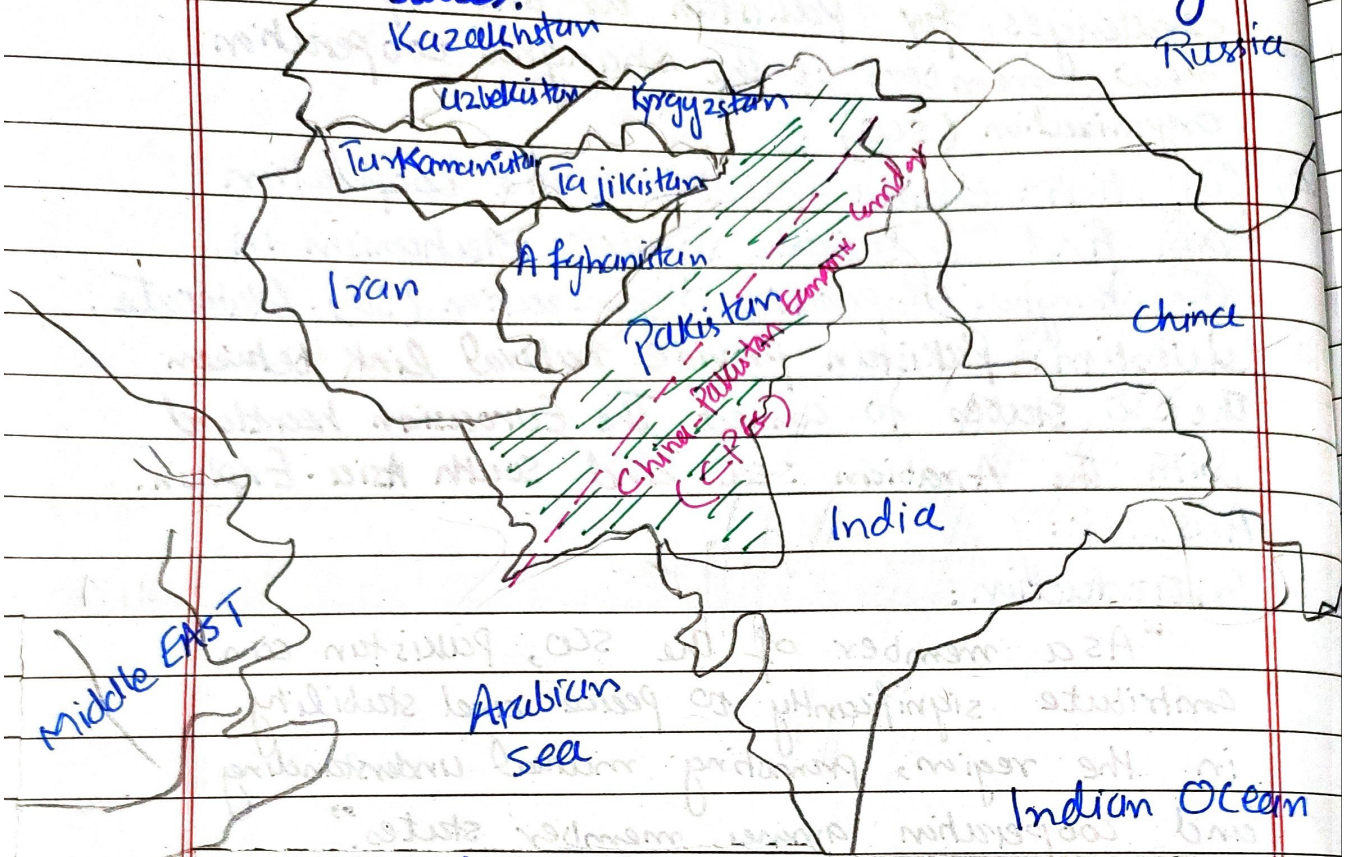 Kazaakhstan
Russia
Uzbekistan
Kyrgyzstan
Turkamanistan
Tajikistan
Afghanistan
Iran
Pakistan
China
China-Pakistan Economic Corridor
(CPEC)
India
Middle EAST
Arabian
sea
Indian Ocean